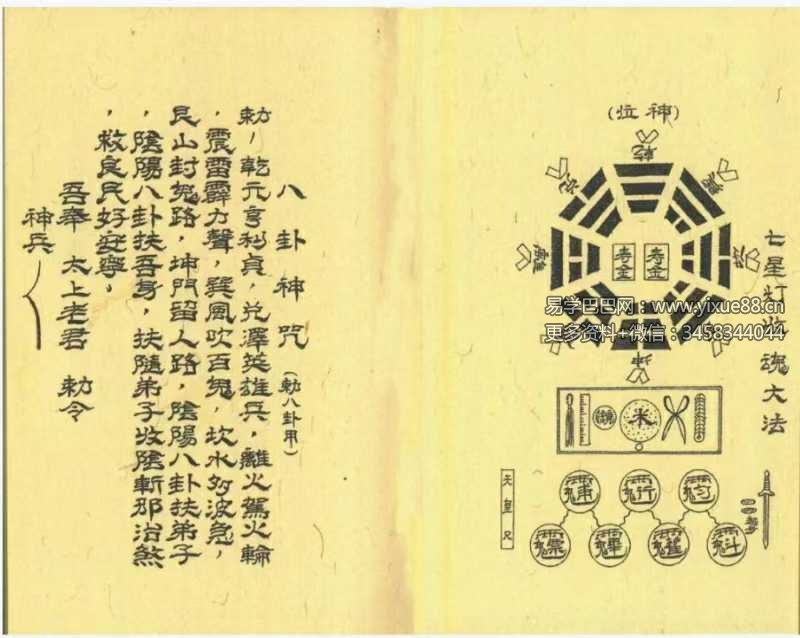 七星灯收魂大法
(神位)
乾
坤
壽金
壽金
米
鏡
天皇尺
易学巴巴网：www.yixue88.cn
更多资料+微信：3458344044
八卦神咒(勅八卦用)
勅，乾元亨利貞，兌澤英雄兵，離火駕火輪
，震雷霹力聲，巽風吹百鬼，坎水勿波急，
艮山封鬼路，坤門留人路，陰陽八卦扶弟子
，陰陽八卦扶吾身，扶隨弟子收陰斬邪治煞
，救良民好安寧。
吾奉 太上老君 勅令
神兵